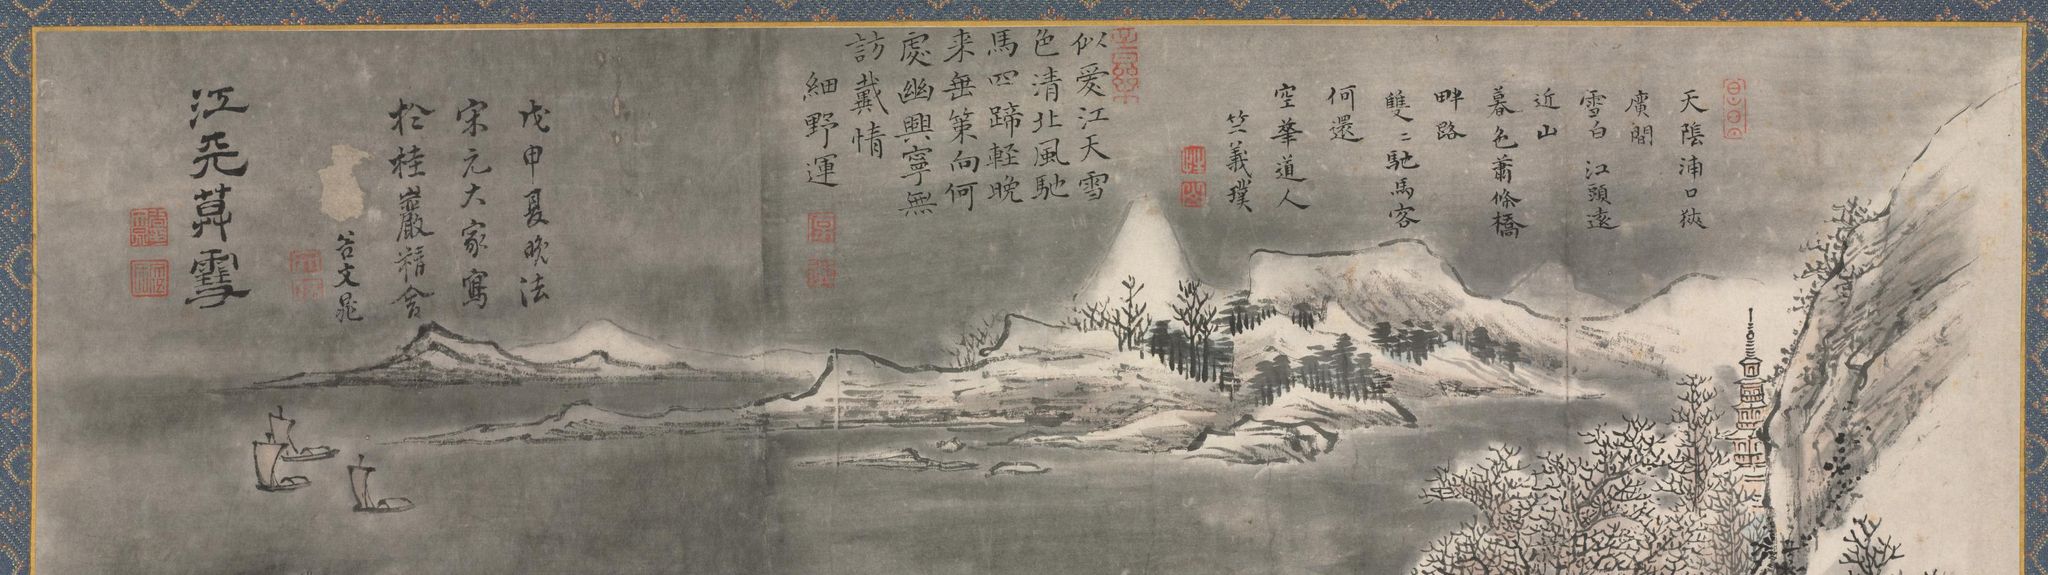 天陰浦口狹
廣閒
雪白江頭遠
近山
暮色蕭條橋
畔路
雙〻馳馬客
何還
空華道人
竺義璞
似愛江天雪
色清北風馳
馬四蹄軽晩
来垂策向何
處幽興寧無
訪戴情
細野運
戊申夏晩法
宋元大家寫
於桂巖精舍
谷文晁
江天莫雪